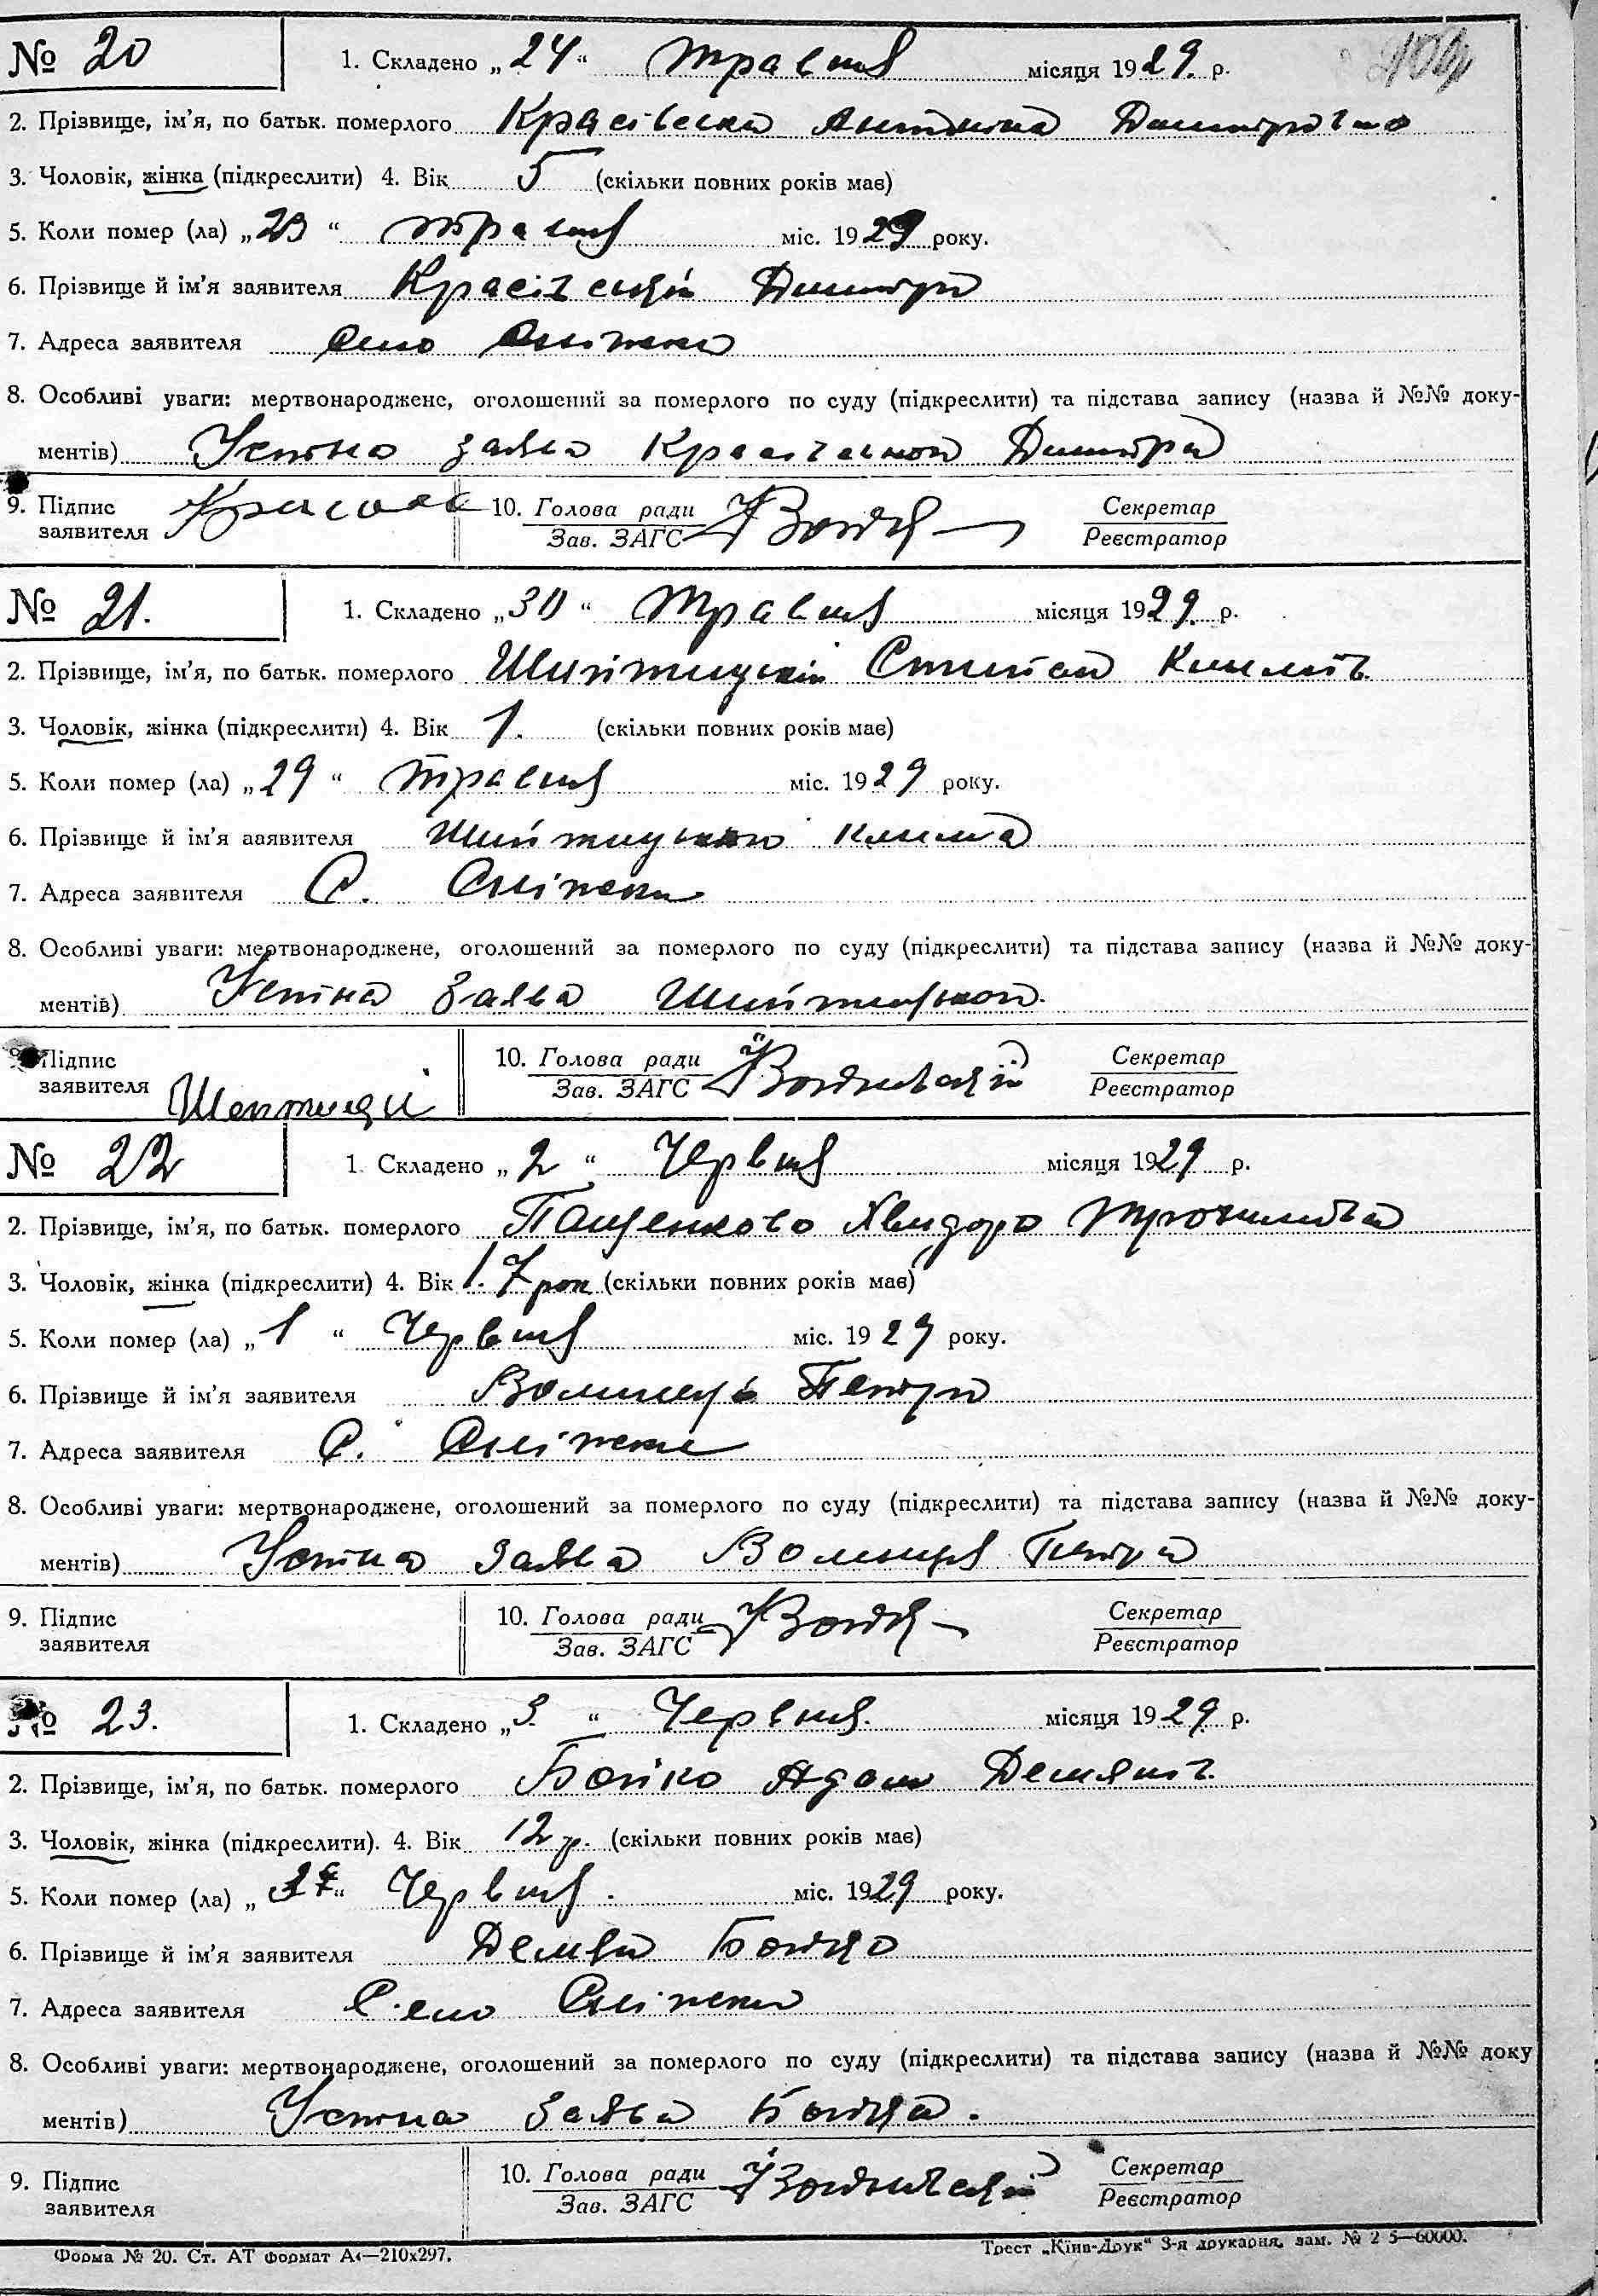 № 20
1. Складено „24“ травня місяця 1929. р.
2. Прізвище, ім’я, по батьк. померлого Красівська Антоніна Дмитрівна
3. Чоловік, жінка (підкреслити) 4. Вік 5 (скільки повних років має)
5. Коли помер (ла) „23“ травня міс. 1929 року.
6. Прізвище й ім’я заявителя Красівський Дмитро
7. Адреса заявителя Село Сніжки
8. Особливі уваги: мертвонароджене, оголошений за померлого по суду (підкреслити) та підстава запису (назва й №№ доку-
ментів) Устна заява Дмитра
9. Підпис заявителя
10. Голова ради
Зав. ЗАГС
Секретар
Реєстратор
№ 21.
1. Складено „30“ травня місяця 1929. р.
2. Прізвище, ім’я, по батьк. померлого Степан Климів
3. Чоловік, жінка (підкреслити) 4. Вік 1. (скільки повних років має)
5. Коли помер (ла) „29“ травня міс. 1929 року.
6. Прізвище й ім’я заявителя Клима
7. Адреса заявителя С. Сніжки
8. Особливі уваги: мертвонароджене, оголошений за померлого по суду (підкреслити) та підстава запису (назва й №№ доку-
ментів) Устна заява
9. Підпис заявителя
10. Голова ради
Зав. ЗАГС
Секретар
Реєстратор
№ 22
1. Складено „2“ Червня місяця 1929 р.
2. Прізвище, ім’я, по батьк. померлого Пащенкова Хвидора
3. Чоловік, жінка (підкреслити) 4. Вік 1.7 рок (скільки повних років має)
5. Коли помер (ла) „1“ Червня міс. 1929 року.
6. Прізвище й ім’я заявителя Волинець Петро
7. Адреса заявителя С. Сніжки
8. Особливі уваги: мертвонароджене, оголошений за померлого по суду (підкреслити) та підстава запису (назва й №№ доку-
ментів) Устна заява Волинця Петра
9. Підпис заявителя
10. Голова ради
Зав. ЗАГС
Секретар
Реєстратор
№ 23.
1. Складено „3.“ Червня. місяця 1929 р.
2. Прізвище, ім’я, по батьк. померлого Бойко Адам Демянів
3. Чоловік, жінка (підкреслити). 4. Вік 12 р. (скільки повних років має)
5. Коли помер (ла) Червня. міс. 1929 року.
6. Прізвище й ім’я заявителя Демян Бойко
7. Адреса заявителя Село Сніжки
8. Особливі уваги: мертвонароджене, оголошений за померлого по суду (підкреслити) та підстава запису (назва й №№ доку
ментів) Устна заява Бойка.
9. Підпис заявителя
10. Голова ради
Зав. ЗАГС
Секретар
Реєстратор
Форма № 20. Ст. АТ Формат А4—210х297.
Трест „Київ-Друк“ 3-я друкарня, зам. № 2 5—60000.